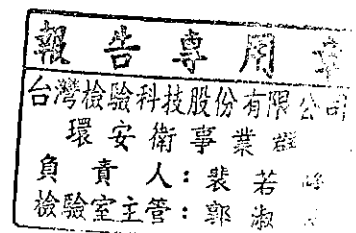 報告專用章
台灣檢驗科技股份有限公司
環安衛事業群
負責人：裴若
檢驗室主管：郭淑